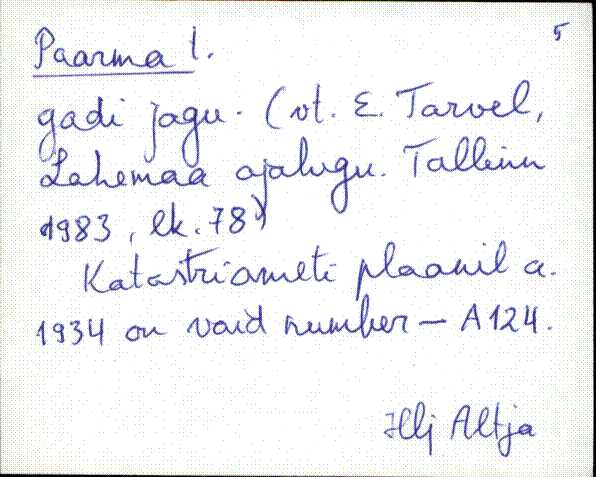 5
Paarma t.
gadi jagu. (vt. E. Tarvel,
Lahemaa ajalugu. Tallinn
1983, lk. 78)
Katastriameti plaanil a.
1934 on vaid number – A124.
Hlj Altja